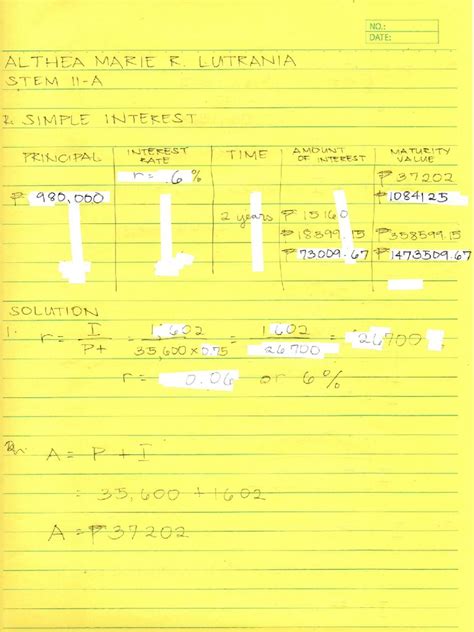 NO.:
DATE:
ALTHEA MARIE R. LUTRANIA
STEM 11-A
SIMPLE INTEREST
PRINCIPAL INTEREST RATE TIME AMOUNT OF INTEREST MATURITY VALUE
r = .6 % ₱ 37202
₱ 980,000 ₱1084125
2 years ₱ 15160
₱ 18399.15 ₱358599.15
₱ 73009.67 ₱1473509.67
SOLUTION
1. r = I / Pt = 1,602 / 35,600 x 0.75 = 1.602 / 26.700 = 26700
r = 0.06 or 6%
2. A = P + I
= 35,600 + 1602
A = ₱37202